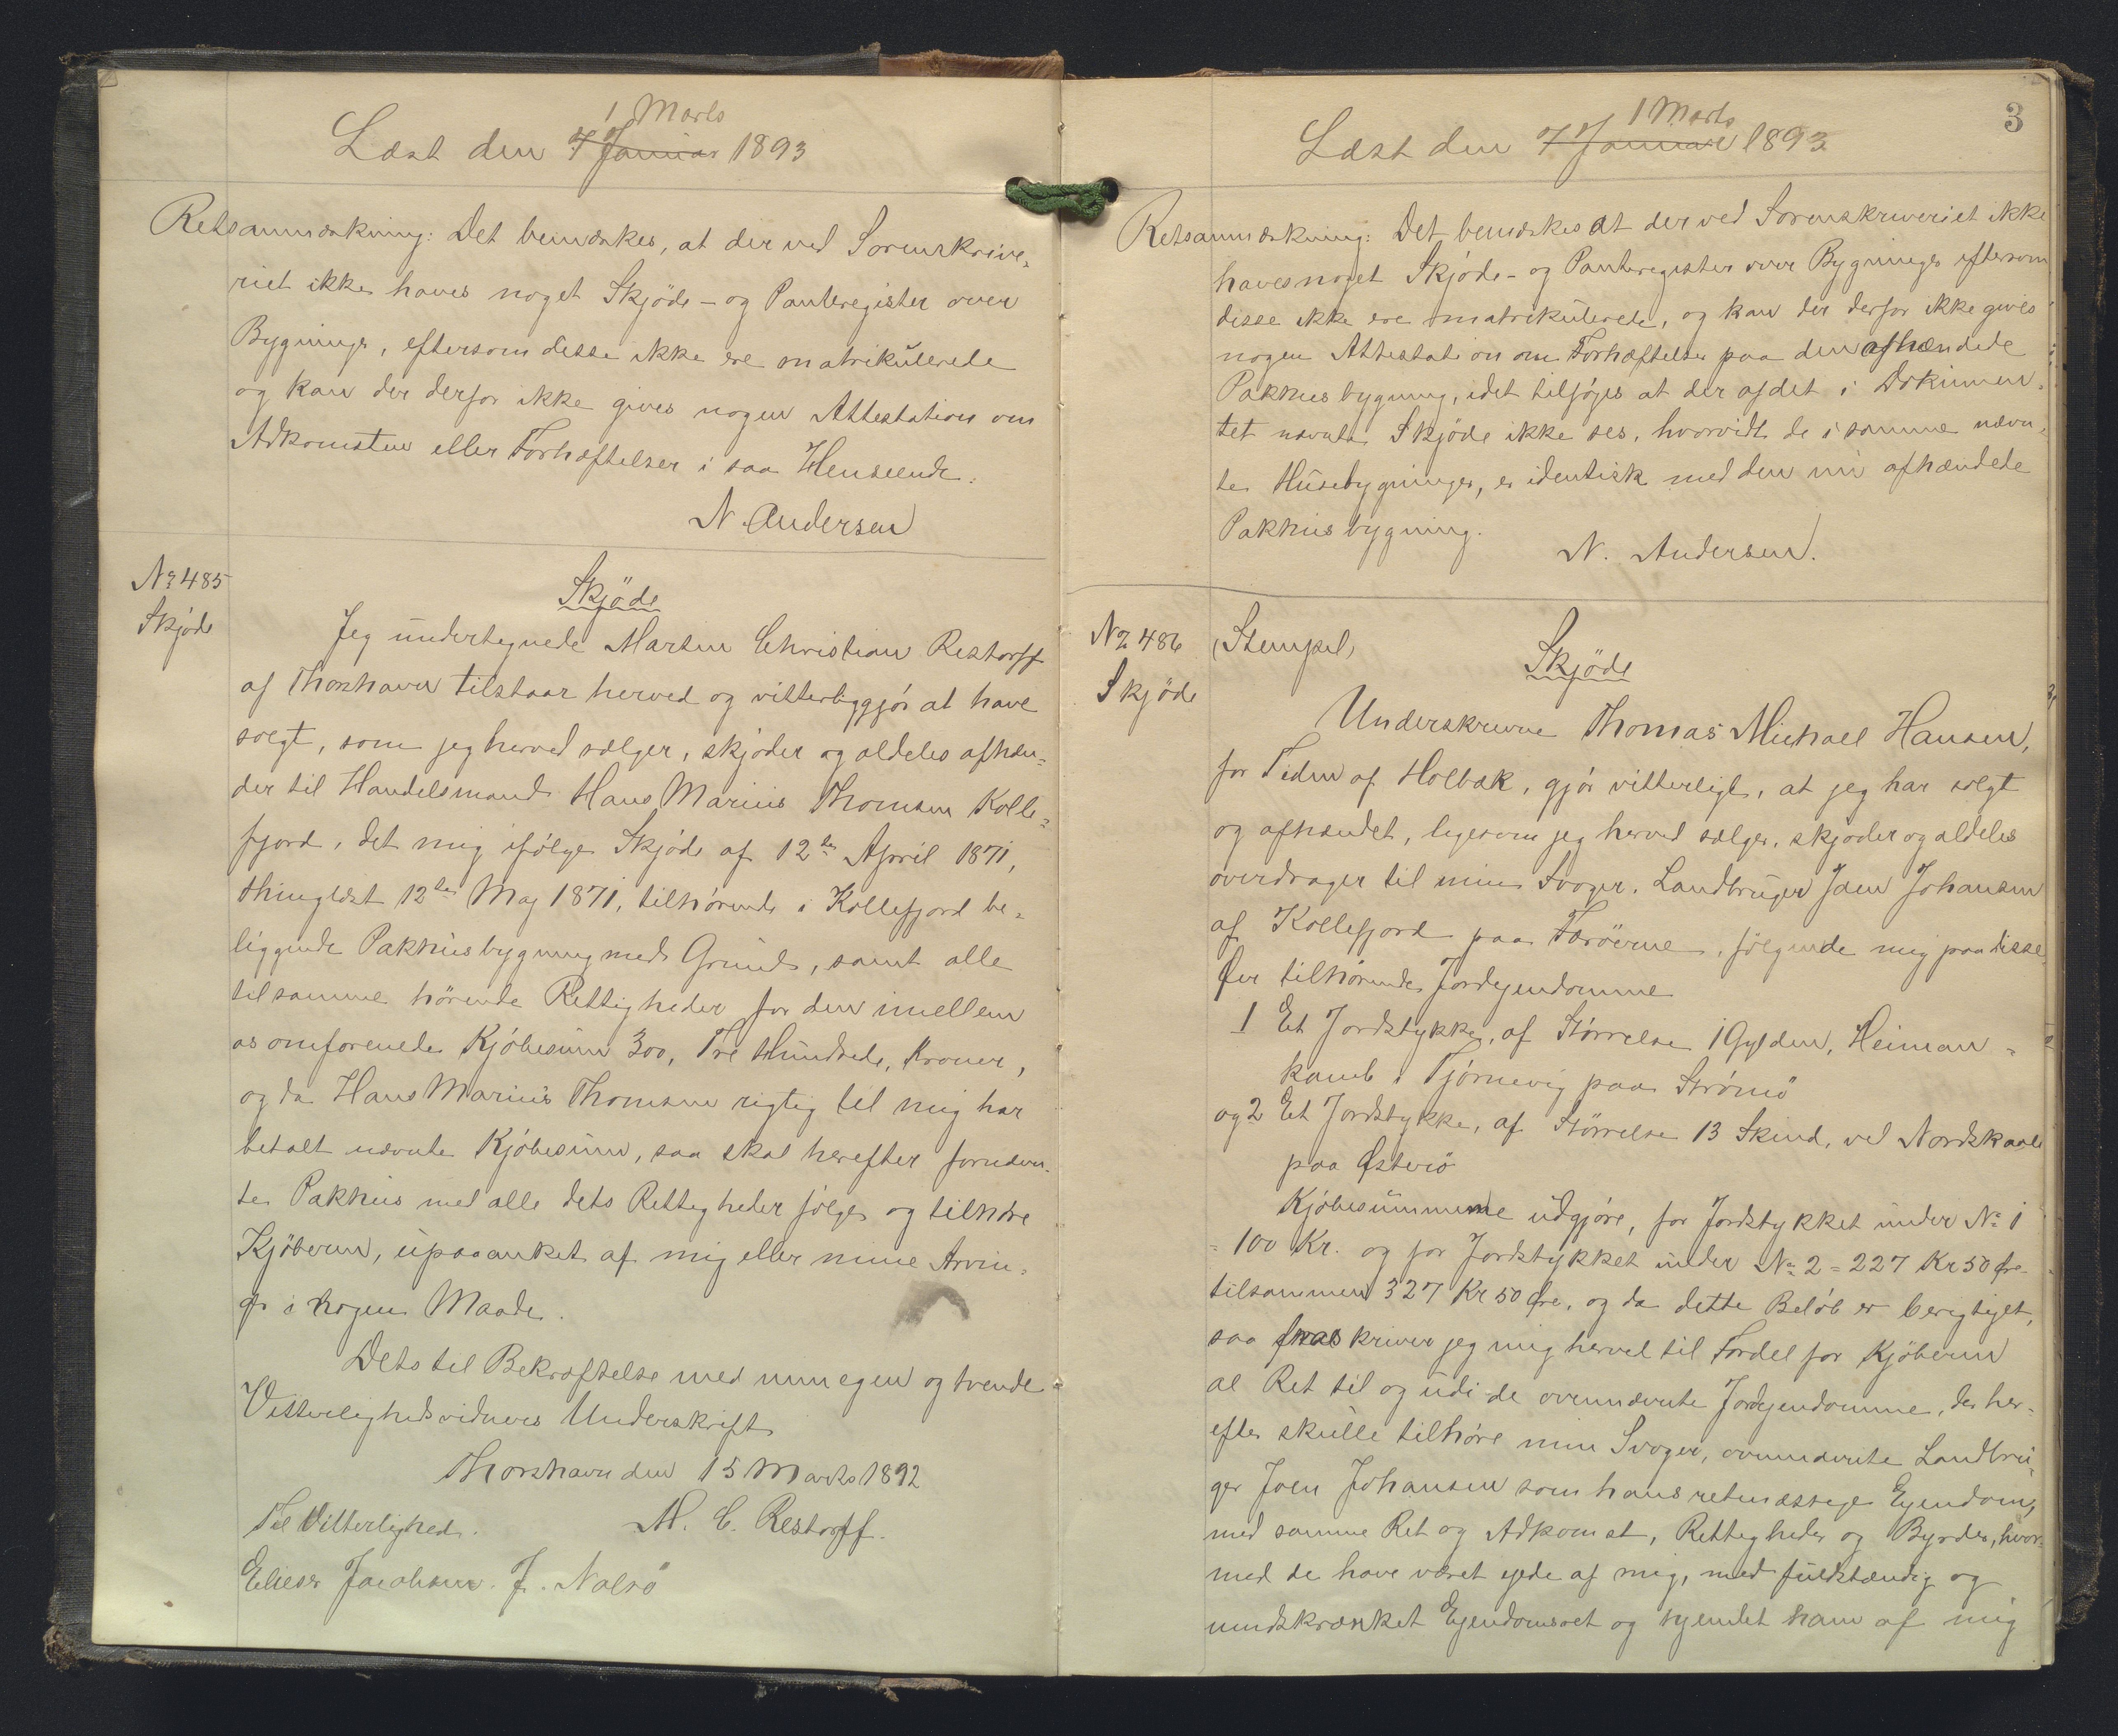 1 Marts
Læst den 7 Januar 1893
Retsanmærkning: Det bemærkes, at der ved Sorenskrive-
riet ikke haves noget Skjöde- og Panteregister over
Bygninger, eftersom disse ikke ere matrikulerede
og kan der derfor ikke gives nogen Attestation om
Adkomsten eller Forhæftelser i saa Henseende.
N. Andersen
No 485
Skjøde
Skjöde
Jeg undertegnede Marten Christian Restorff
af Thorshavn tilstaar herved og vitterliggjør at have
solgt, som jeg herved sælger, skjøder og aldeles afhæn-
der til Handelsmand Hans Marius Thomsen Kolle-
fjord, det mig ifølge Skjøde af 12te April 1871,
thinglæst 12te Maj 1871, tilhørende i Kollefjord be-
liggende Pakhusbygning med Grund, samt alle
til samme hørende Rettigheder for den imellem
os omforenede Kjøbesum 300, Tre Hundrede, Kroner,
og da Hans Marius Thomsen rigtig til mig har
betalt nævnte Kjøbesum, saa skal herefter fornævn-
te Pakhus med alle dets Rettigheder følge og tilhøre
Kjøberen, upaaanket af mig eller mine Arvin-
ger i nogen Maade.
Dets til Bekræftelse med min egen og tvende
Vitterlighedsvidners Underskrift
Thorshavn den 15 Marts 1892
Til Vitterlighed. M. C. Restorff.
Elieser Jacobsen. J. Nolsö
3
1 Marts
Læst den 7 Januar 1893
Retsanmærkning: Det bemærkes at der ved Sorenskriveriet ikke
haves noget Skjøde- og Panteregister over Bygninger eftersom
disse ikke ere matrikulerede, og kan der derfor ikke gives
nogen Attestation om Forhæftelser paa den afhændede
Pakhusbygning, idet tilføjes at der af det i Dokumen-
tet nævnte Skjøde ikke ses, hvorvidt de i samme nævn-
te Husebygninger, er identisk med den nu afhændede
Pakhusbygning.
N. Andersen.
No 486
Skjöde
(Stempel)
Skjöde
Underskrevne Thomas Michael Hansen,
for Tiden af Holbæk, gjör vitterligt, at jeg har solgt
og afhændet, ligesom jeg herved sælger, skjøder og aldeles
overdrager til min Svoger, Landbruger Joen Johansen
af Kollefjord paa Færöerne, følgende mig paa disse
Øer tilhørende Jordejendomme
1 Et Jordstykke, af Størrelse 1 Gylden, Heiman-
kamb i Tjørnevig paa Strømö
og 2 Et Jordstykke, af Størrelse 13 Skind, ved Nordskaale
paa Østerö
Kjøbesummerne udgjøre, for Jordstykket under No 1
= 100 Kr. og for Jordstykket under No 2 = 227 Kr 50 Øre
tilsammen 327 Kr 50 Øre, og da dette Beløb er berigtiget,
saa fraskriver jeg mig herved til Fordel for Kjöberen
al Ret til og udi de ovennævnte Jordejendomme, der her-
efter skulle tilhøre min Svoger, ovennævnte Landbru-
ger Joen Johansen som hans retmæssige Ejendom,
med samme Ret og Adkomst, Rettigheder og Byrder, hvor-
med de have været ejede af mig, med fuldstændig og
uindskrænket Ejendomsret og hjemlet ham af mig